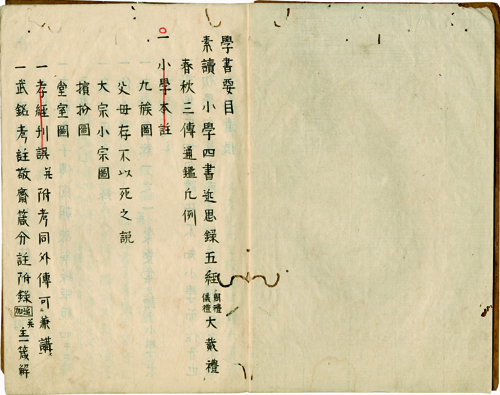 學書要目
素讀 小學四書近思録五經周禮儀禮大戴禮
春秋三傳通鑑凡例
一 小學本註
一 九族圖
父母存不以死之説
大宗小宗圖
擯扮圖
堂室圖
一孝經刋誤 附考同外傳可兼講
一武銘考註敬齋箴分註附録 主一箴解